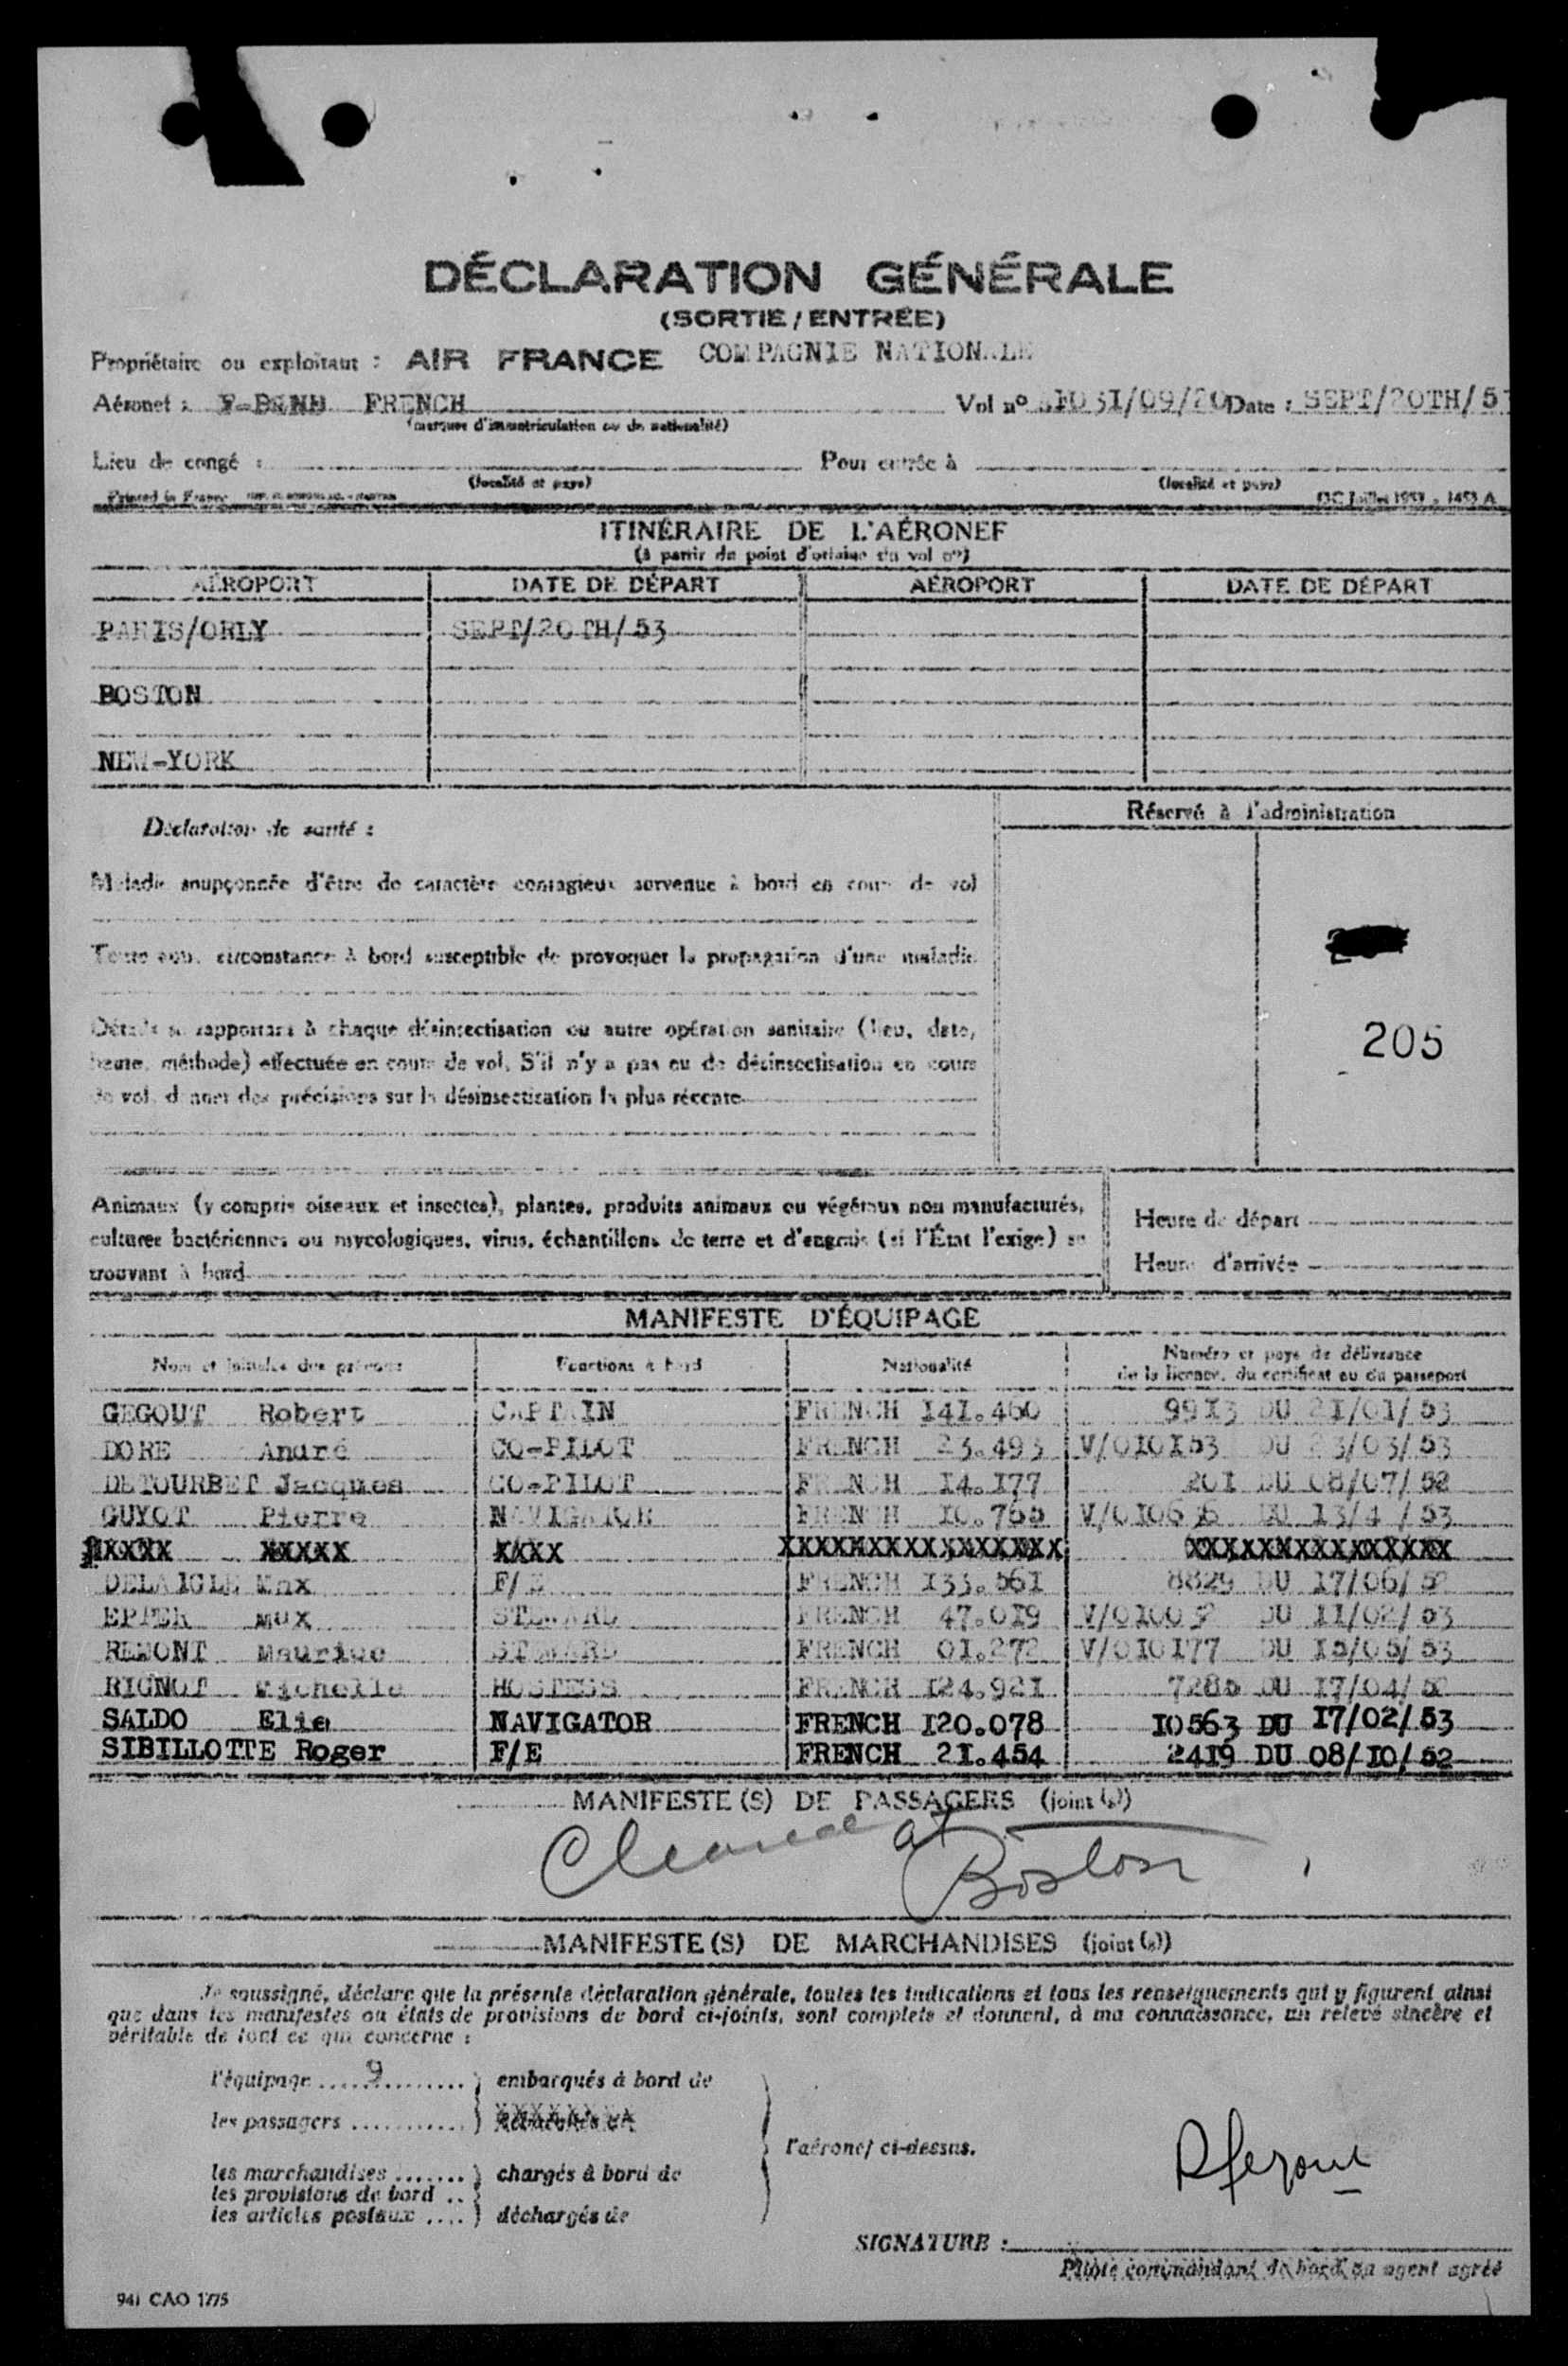 DÉCLARATION GÉNÉRALE
(SORTIE / ENTRÉE)
Propriétaire ou exploitant : AIR FRANCE COMPAGNIE NATIONALE
Aéronef : FRENCH Vol nº 031/09/20 Date : SEPT/20TH/5
(marques d'immatriculation ou de nationalité)
Lieu de congé : Pour entrée à
(localité et pays) (localité et pays)
Printed in France
ITINÉRAIRE DE L'AÉRONEF
(à partir du point d'origine du vol nº)
AÉROPORT DATE DE DÉPART AÉROPORT DATE DE DÉPART
PARIS/ORLY SEPT/20TH/53
BOSTON
NEW-YORK
Réservé à l'administration
Déclaration de santé :
Maladie soupçonnée d'être de caractère contagieux survenue à bord en cours de vol
Toute autre circonstance à bord susceptible de provoquer la propagation d'une maladie
Détails se rapportant à chaque désinsectisation ou autre opération sanitaire (lieu, date,
heure, méthode) effectuée en cours de vol. S'il n'y a pas eu de désinsectisation en cours
de vol, donner des précisions sur la désinsectisation la plus récente
205
Animaux (y compris oiseaux et insectes), plantes, produits animaux ou végétaux non manufacturés,
cultures bactériennes ou mycologiques, virus, échantillons de terre et d'engrais (si l'État l'exige) se
trouvant à bord
Heure de départ
Heure d'arrivée
MANIFESTE D'ÉQUIPAGE
Nom et initiales des prénoms Fonctions à bord Nationalité Numéro et pays de délivrance
de la licence, du certificat ou du passeport
GEGOUT Robert CAPTAIN FRENCH 141.460 9913 DU 21/01/53
DORE André CO-PILOT FRENCH 23.493 V/010153 DU 23/03/53
DETOURBET Jacques CO-PILOT FRENCH 14.177 201 DU 08/07/52
GUYOT Pierre NAVIGATOR FRENCH 10.765 DU 13/4 /53
XXXXX XXXXX XXXX XXXXXXXXXXXXXXXX XXXXXXXXXXXXXXX
DELAIGLE Max F/E FRENCH 133.561 8829 DU 17/06/52
EPPER Max STEWARD FRENCH 47.019 DU 11/02/53
REMONT Maurice STEWARD FRENCH 01.272 V/010177 DU 15/05/53
RIGNOT Michelle HOSTESS FRENCH 124.921 7285 DU 17/04/52
SALDO Elie NAVIGATOR FRENCH 120.078 10563 DU 17/02/53
SIBILLOTTE Roger F/E FRENCH 21.454 2419 DU 08/10/52
MANIFESTE (S) DE PASSAGERS (joint (s))
Cleared at Boston
MANIFESTE (S) DE MARCHANDISES (joint (s))
Je soussigné, déclare que la présente déclaration générale, toutes les indications et tous les renseignements qui y figurent ainsi
que dans les manifestes ou états de provisions de bord ci-joints, sont complets et donnent, à ma connaissance, un relevé sincère et
véritable de tout ce qui concerne :
l'équipage ..... 9 .............. embarqués à bord de
les passagers ...........
l'aéronef ci-dessus.
les marchandises ....... chargés à bord de
les provisions de bord ..
les articles postaux .... déchargés de
SIGNATURE :
Pilote commandant de bord ou agent agréé
941 CAO 1775